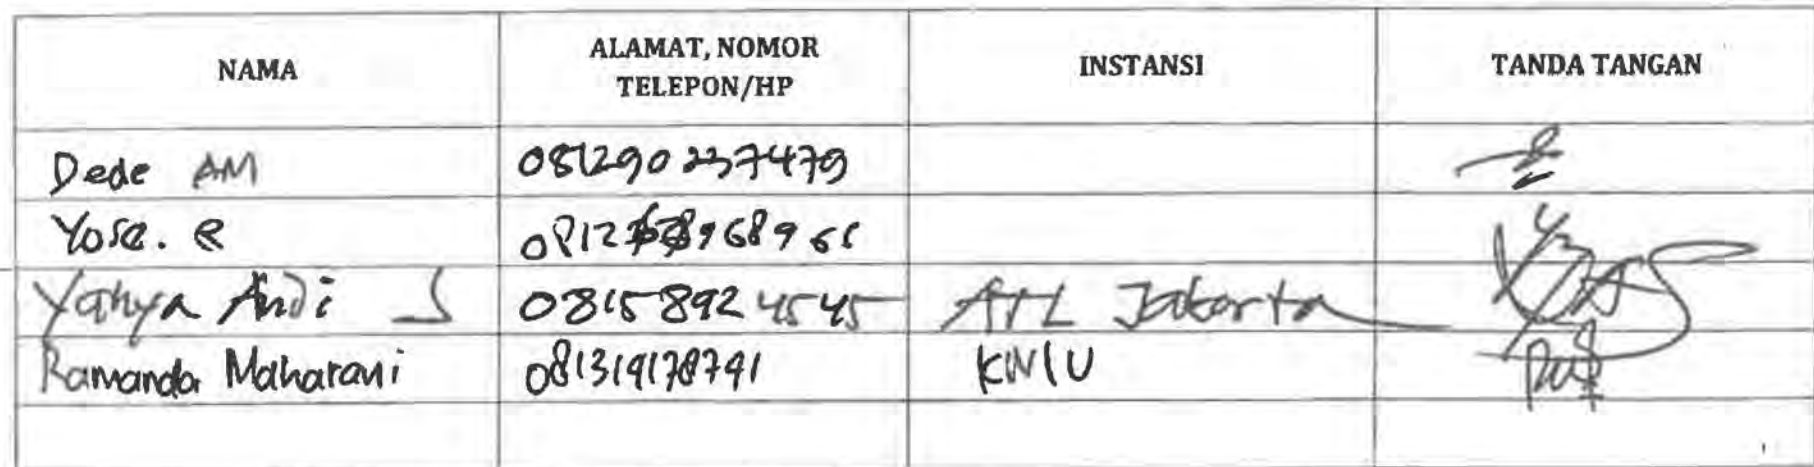 NAMA
ALAMAT, NOMOR
TELEPON/HP
INSTANSI
TANDA TANGAN
Dede AM 081290237479
Yose. e
Yahya Andi S 0815 892 4545 ATL Jakarta
Ramanda Maharani 081319178791 KNIU